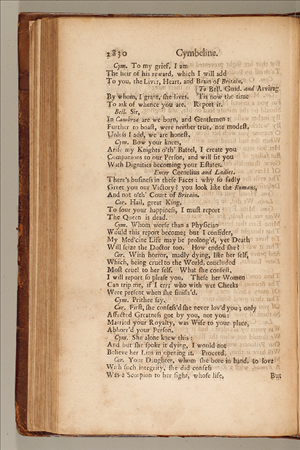 2830 Cymbeline.
Cym. To my grief, I am
The heir of his reward, which I will add
To you, the Liver, Heart, and Brain of Britain,
[To Bell. Guid. and Arvirag.
By whom, I grant, she lives. 'Tis now the time
To ask of whence you are. Report it.
Bell. Sir,
In Cambria are we born, and Gentlemen:
Further to boast, were neither true, nor modest,
Unless I add, we are honest.
Cym. Bow your knees,
Arise my Knights o'th' Battel, I create you
Companions to our Person, and will fit you
With Dignities becoming your Estates.
Enter Cornelius and Ladies.
There's business in these Faces: why so sadly
Greet you our Victory? you look like the Romans,
And not o'th' Court of Britain.
Cor. Hail, great King,
To sour your happiness, I must report
The Queen is dead.
Cym. Whom worse than a Physician
Would this report become; but I consider,
My Med'cine Life may be prolong'd, yet Death
Will seize the Doctor too. How ended she?
Cor. With horror, madly dying, like her self,
Which, being cruel to the World, concluded
Most cruel to her self. What she confest,
I will report so please you. These her Women
Can trip me, if I err; who with wet Cheeks
Were present when she finish'd.
Cym. Prithee say.
Cor. First, she confess'd she never lov'd you; only
Affected Greatness got by you, not you:
Married your Royalty, was Wife to your place,
Abhorr'd your Person.
Cym. She alone knew this:
And but she spoke it dying, I would not
Believe her Lips in opening it. Proceed.
Cor. Your Daughter, whom she bore in hand to love
With such integrity, she did confess
Was a Scorpion to her sight, whose life,
But